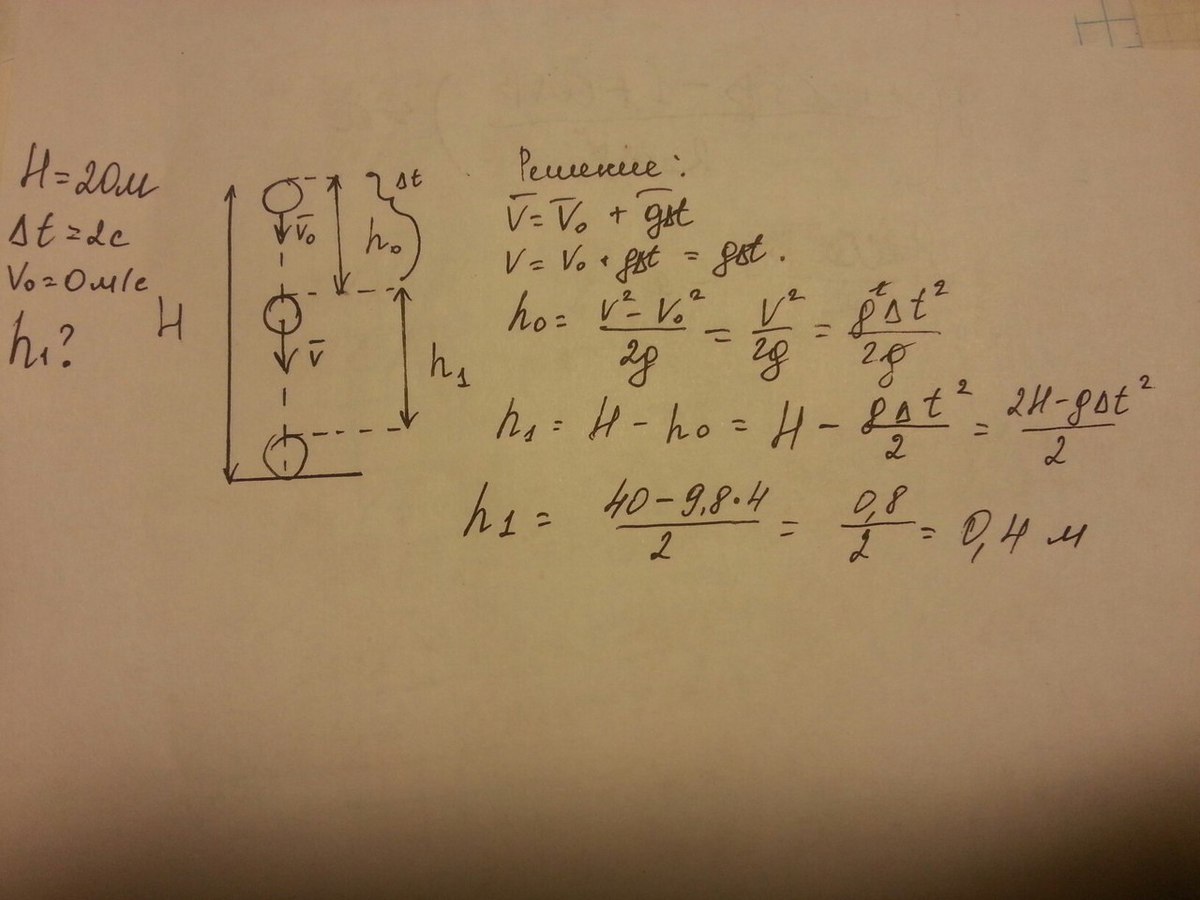 H = 20м
Δt = 2с
V₀ = 0 м/с
h₁?
H
V̅₀
h₀
Δt
V̅
h₁
Решение:
V̅ = V̅₀ + g̅Δt
V = V₀ + gΔt = gΔt.
h₀ = (V² - V₀²)/2g = V²/2g = g²Δt²/2g
h₁ = H - h₀ = H - gΔt²/2 = (2H - gΔt²)/2
h₁ = (40 - 9,8·4)/2 = 0,8/2 = 0,4 м